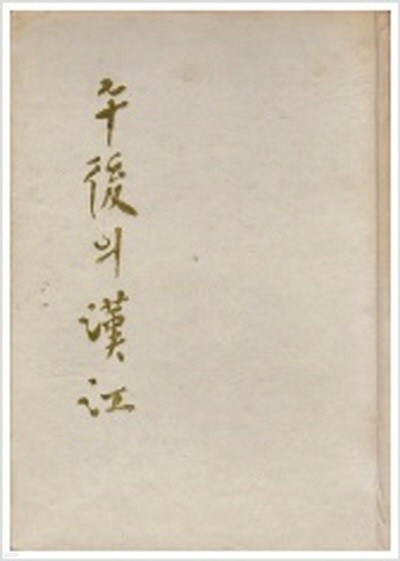 午後의 漢江